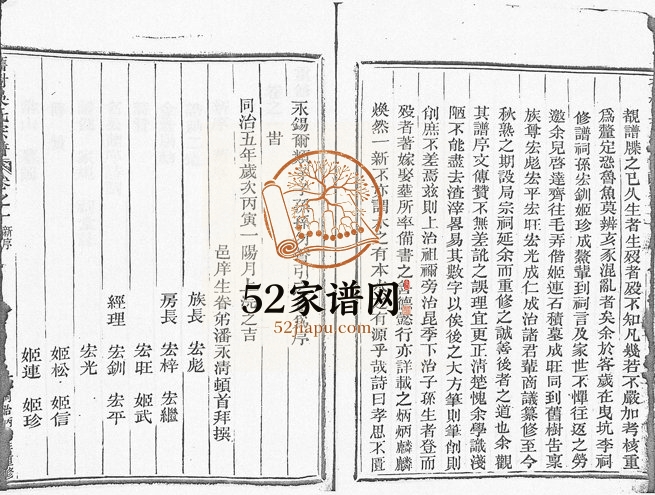 覩譜牒之已久生者生歿者歿不知凡幾若不嚴加考核重
爲釐定恐魯魚莫辨亥豕混亂者矣余於客歲在曳坑李祠
修譜祠孫宏釧姬珍成鰲輩到祠言及家世不憚往返之勞
邀余兒啓達齊往毛弄偕姬連石積墓成旺同到舊樹告禀
族尊宏彪宏平宏旺宏光成仁成治諸君輩商議纂修至今
秋熟之期設局宗祠延余而重修之誠善後者之道也余觀
其譜序文傳贊不無差訛之誤理宜更正清楚愧余學識淺
陋不能盡去渣滓畧易其數字以俟後之大方筆則筆削則
削庶不差焉兹則上治祖禰旁治昆季下治子孫生者登而
歿者著嫁娶塟所率備書之善德懿行亦詳載之炳炳麟麟
煥然一新不亦謂水之有本木之有源乎哉詩曰孝思不匱
永錫爾類
引
序
旹
同治五年歲次丙寅一陽月
之吉
邑庠生眷弟潘永清頓首拜撰
族長 宏彪
房長 宏梓 宏繼
宏旺 姬武
經理 宏釧 宏平
宏光
姬松 姬信
姬連 姬珍
新序
52家谱网
52jiapu.com